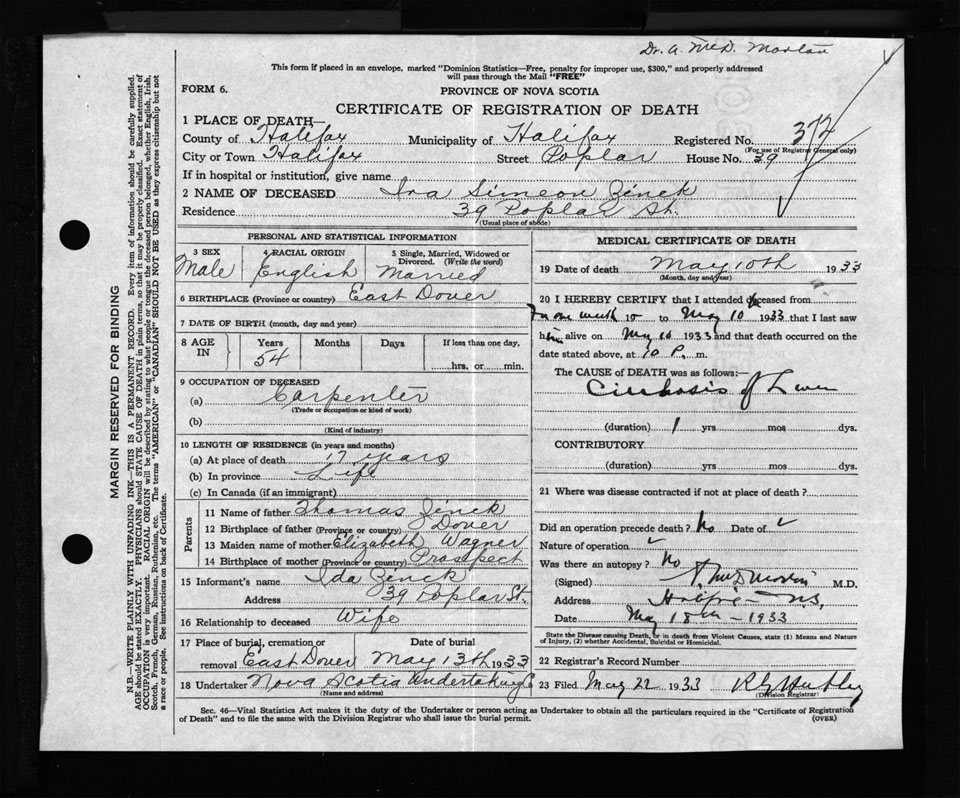 Dr. A. McD. Morton
This form if placed in an envelope, marked "Dominion Statistics—Free, penalty for improper use, $300," and properly addressed
will pass through the Mail "FREE"
FORM 6.
PROVINCE OF NOVA SCOTIA
CERTIFICATE OF REGISTRATION OF DEATH
1 PLACE OF DEATH—
County of Halifax Municipality of Halifax Registered No. 374
(For use of Registrar General only)
City or Town Halifax Street Poplar House No. 39
If in hospital or institution, give name
2 NAME OF DECEASED Ira Simeon Zinck
Residence 39 Poplar St.
(Usual place of abode)
PERSONAL AND STATISTICAL INFORMATION
3 SEX 4 RACIAL ORIGIN 5 Single, Married, Widowed or Divorced. (Write the word)
Male English Married
6 BIRTHPLACE (Province or country) East Dover
7 DATE OF BIRTH (month, day and year)
8 AGE IN Years Months Days If less than one day,
54 hrs. or min.
9 OCCUPATION OF DECEASED
(a) Carpenter
(Trade or occupation or kind of work)
(b)
(Kind of industry)
10 LENGTH OF RESIDENCE (in years and months)
(a) At place of death 17 years
(b) In province Life
(c) In Canada (if an immigrant)
Parents
11 Name of father Thomas Zinck
12 Birthplace of father (Province or country) Dover
13 Maiden name of mother Elizabeth Wagner
14 Birthplace of mother (Province or country) Prospect
15 Informant's name Ida Zinck
Address 39 Poplar St.
16 Relationship to deceased Wife
17 Place of burial, cremation or Date of burial
removal East Dover May 13th 1933
18 Undertaker Nova Scotia Undertaking Co
(Name and address)
MEDICAL CERTIFICATE OF DEATH
19 Date of death May 10th 1933
(Month, day and year)
20 I HEREBY CERTIFY that I attended deceased from
to May 10 1933 that I last saw
him alive on May 10 1933 and that death occurred on the
date stated above, at 10 P. m.
The CAUSE of DEATH was as follows:—
Cirrhosis of Liver
(duration) 1 yrs mos dys.
CONTRIBUTORY
(duration) yrs mos dys.
21 Where was disease contracted if not at place of death?
Did an operation precede death? No Date of
Nature of operation
Was there an autopsy? No
(Signed) A. McD Morton M.D.
Address Halifax N.S.
Date May 18th - 1933
State the Disease causing Death, or in death from Violent Causes, state (1) Means and Nature
of Injury, (2) whether Accidental, Suicidal or Homicidal.
22 Registrar's Record Number
23 Filed May 22 1933
(Division Registrar)
Sec. 46—Vital Statistics Act makes it the duty of the Undertaker or person acting as Undertaker to obtain all the particulars required in the "Certificate of Registration
of Death" and to file the same with the Division Registrar who shall issue the burial permit.
(OVER)
MARGIN RESERVED FOR BINDING
N.B.—WRITE PLAINLY WITH UNFADING INK—THIS IS A PERMANENT RECORD. Every item of information should be carefully supplied.
AGE should be stated EXACTLY. PHYSICIANS should STATE CAUSE OF DEATH in plain terms, so that it may be properly classified. Exact statement of
OCCUPATION is very important. RACIAL ORIGIN will be described by stating to what people or tongue the deceased person belonged, whether English, Irish,
Scotch, French, German, Russian, Ruthenian, etc. The terms "AMERICAN" or "CANADIAN" SHOULD NOT BE USED as they express citizenship but not
a race or people. See instructions on back of Certificate.